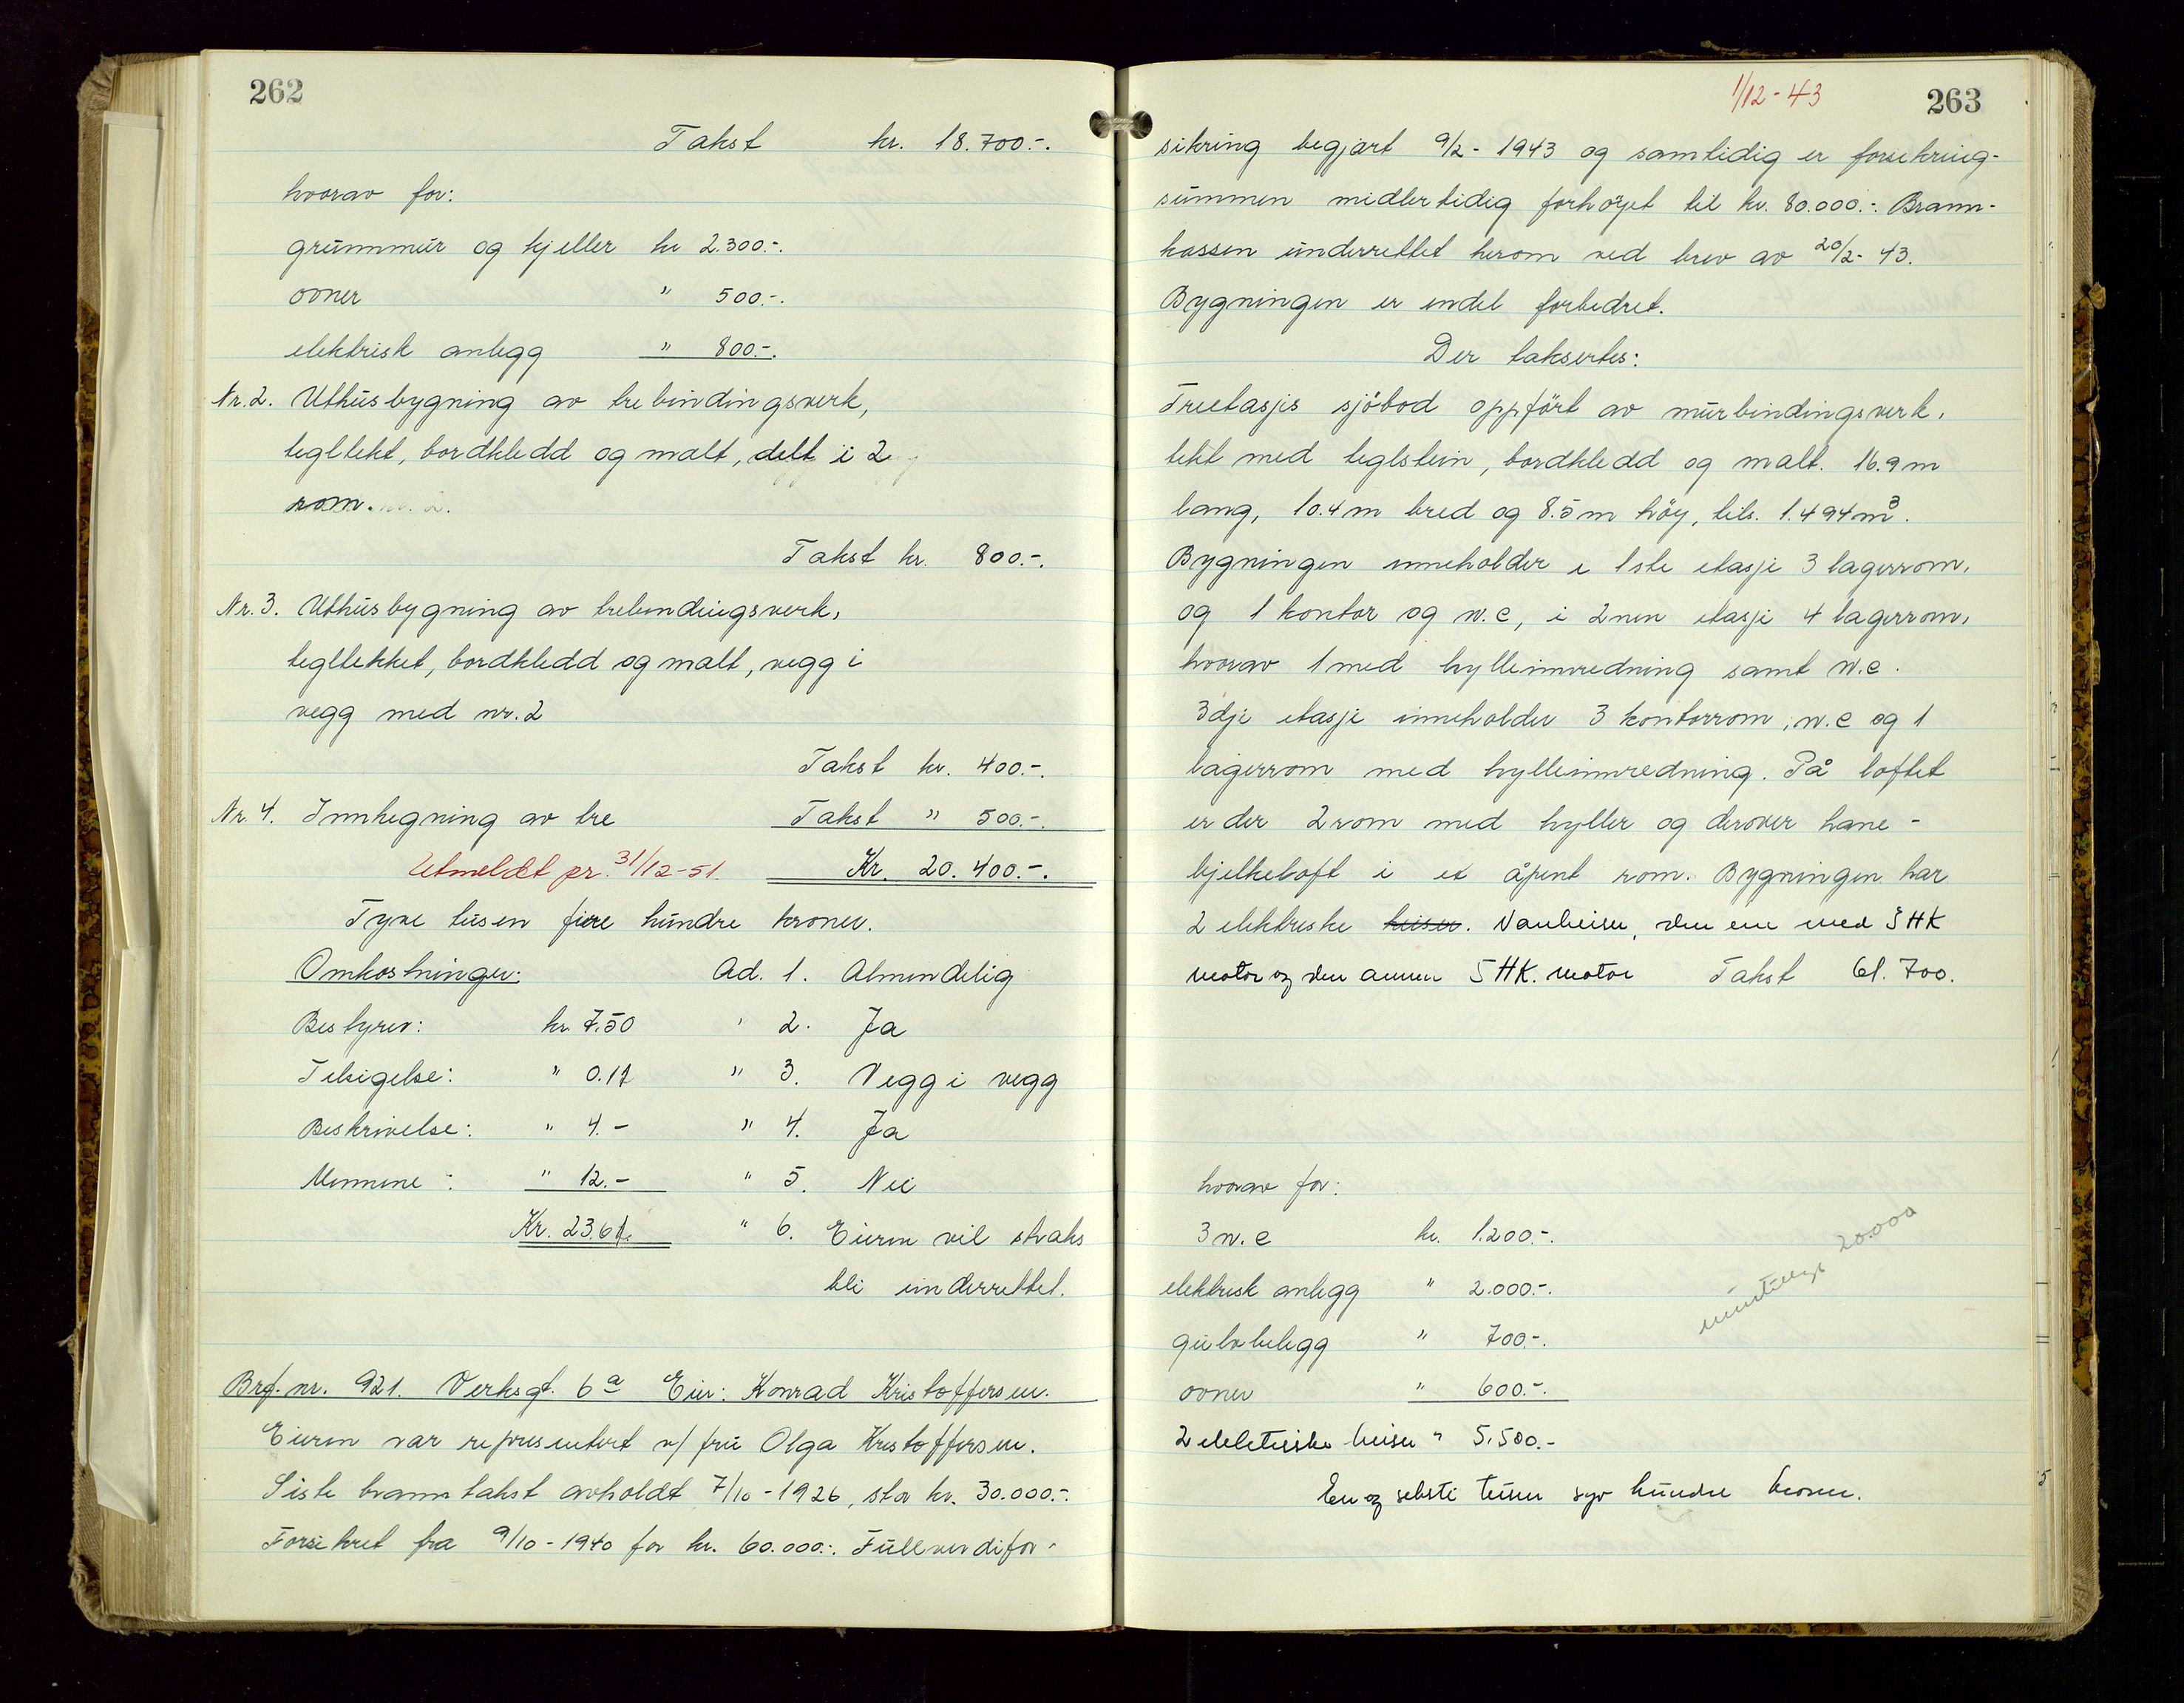 262
Takst kr. 18.700.-.
hvorav for:
grunnmur og kjeller kr 2.300.-.
ovner " 500.-.
elektrisk anlegg " 800.-.
Nr. 2. Uthusbygning av trebindingsverk,
tegltekt, bordkledd og malt, delt i 2
rom.
Takst kr. 800.-.
Nr. 3. Uthusbygning av trebindingsverk,
tegltekket, bordkledd og malt, vegg i
vegg med nr. 2
Takst kr. 400.-.
Nr. 4. Innhegning av tre Takst " 500.-.
Utmeldt pr. 31/12-51. Kr. 20.400.-.
Tyve tusen fire hundre kroner.
Omkostninger: Ad. 1. Almindelig
Bestyrer: kr. 7.50 " 2. Ja
Tilsigelse: " 0.17 " 3. Vegg i vegg
Beskrivelse: " 4.- " 4. Ja
Mennene: " 12.- " 5. Nei
Kr. 23.67. " 6. Eieren vil straks
bli underrettet.
Brf. nr. 921. Verksgt. 6a Eier: Konrad Kristoffersen.
Eieren var representert v/ fru Olga Kristoffersen.
Siste branntakst avholdt 7/10-1926, stor kr. 30.000.-.
Forsikret fra 9/10-1940 for kr. 60.000.-. Fullverdifor-
1/12-43 263
sikring begjært 9/2-1943 og samtidig er forsikring-
summen midlertidig forhöyet til kr. 80.000.-. Brann-
kassen underrettet herom ved brev av 20/2-43.
Bygningen er endel forbedret.
Der taksertes:
Treetasjes sjöbod oppfört av murbindingsverk,
tekt med teglstein, bordkledd og malt. 16.9 m
lang, 10.4 m bred og 8.5 m höy, tils. 1.494 m3.
Bygningen inneholder i 1ste etasje 3 lagerrom,
og 1 kontor og w.c, i 2nen etasje 4 lagerrom,
hvorav 1 med hylleinnredning samt w.c.
3dje etasje inneholder 3 kontorrom, w.c og 1
lagerrom med hylleinnredning. På loftet
er der 2 rom med hyller og derover hane-
bjelkeloft i et åpent rom. Bygningen har
2 elektriske heiser. Vareheiser, den ene med 3 HK
motor og den annen 5 HK. motor Takst 61.700.
hvorav for:
3 w.c kr. 1.200.-.
elektrisk anlegg " 2.000.-.
gulvbelegg " 700.-.
ovner " 600.-.
2 elektriske heiser " 5.500.-
20.000
En og seksti tusen syv hundre kroner.